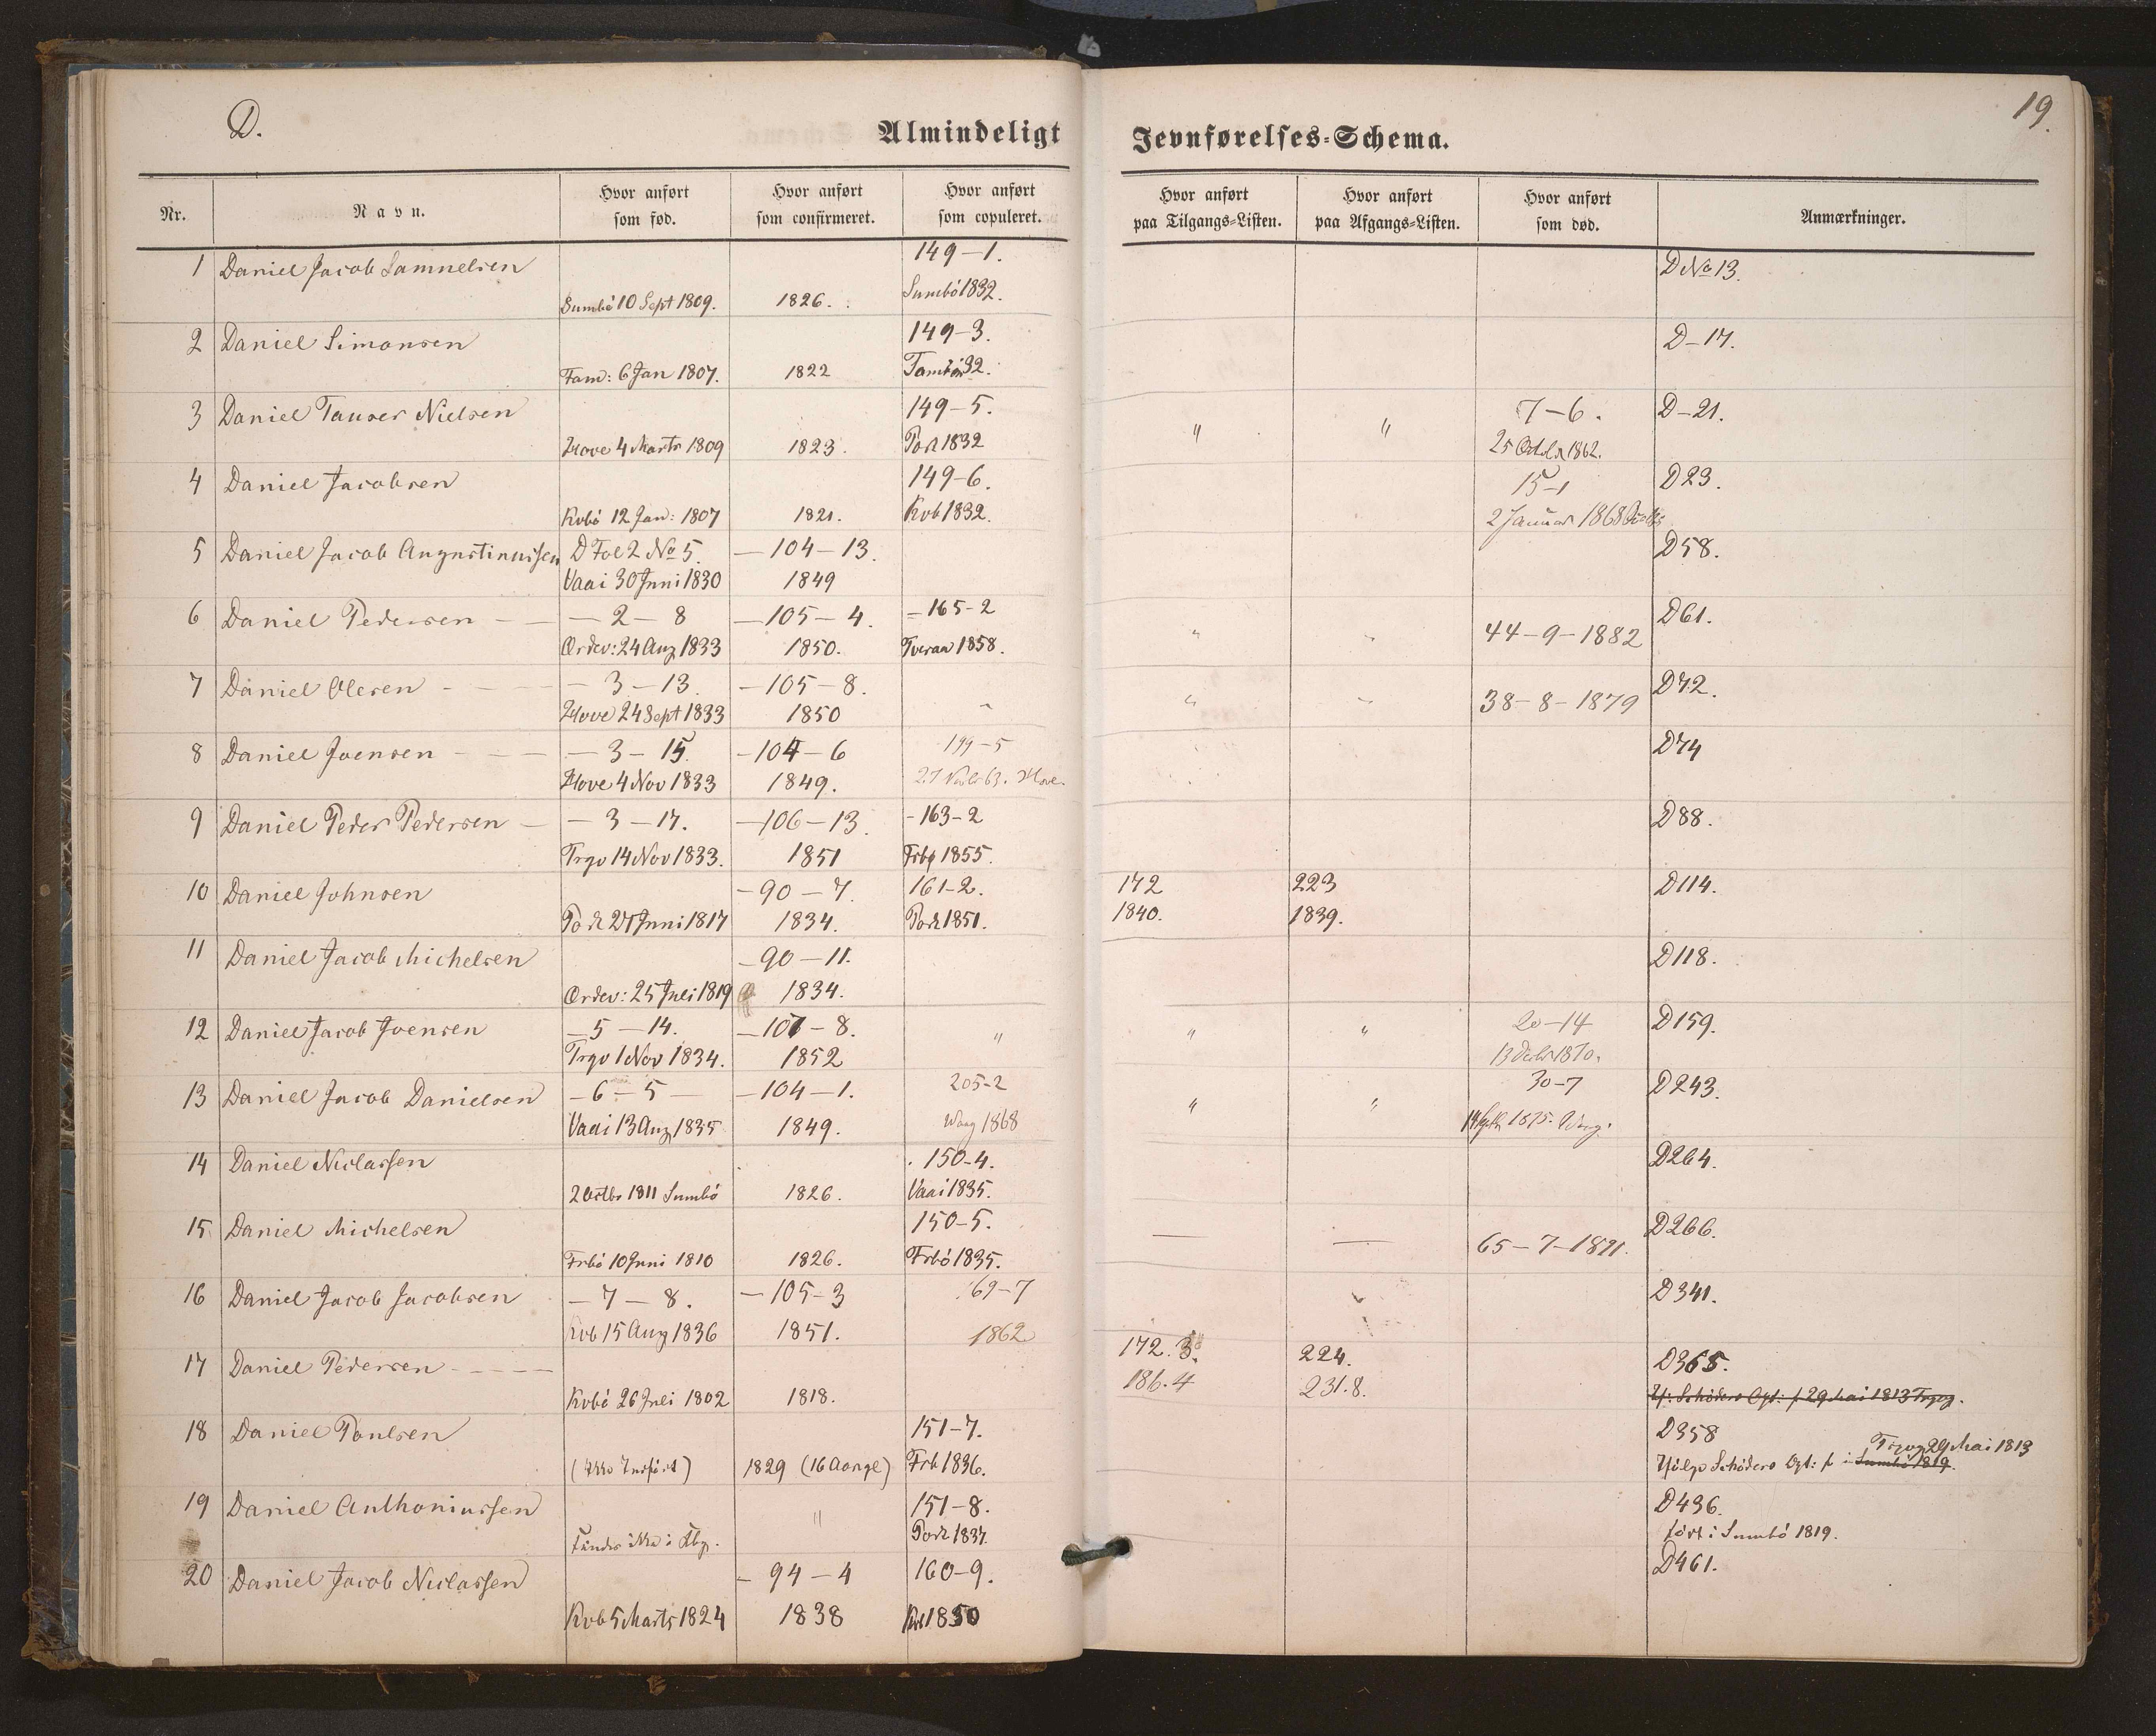 D.
19.
Almindeligt Jevnførelses-Schema.
Nr. | Navn. | Hvor anført som fød. | Hvor anført som confirmeret. | Hvor anført som copuleret. | Hvor anført paa Tilgangs-Listen. | Hvor anført paa Afgangs-Listen. | Hvor anført som død. | Anmærkninger.
1 Daniel Jacob Samuelsen 149-1. D No 13.
Sumbö 10 Sept 1809. 1826. Sumbö 1832.
2 Daniel Simonsen 149-3. D-17.
Fam: 6 Jan 1807. 1822 32.
3 Daniel Tauser Nielsen 149-5. " " 7-6. D-21.
Hove 4 Marts 1809 1823. Pork 1832 25 Octbr 1862.
4 Daniel Jacobsen 149-6. 15-1 D23.
Kvbö 12 Jan: 1807 1821. Kvb 1832. 2 Januar 1868
5 Daniel Jacob Augustinussen D Fol 2 No 5. -104-13. D58.
Vaai 30 Juni 1830 1849
6 Daniel Pedersen - 2 - 8 -105-4. -165-2 " " 44-9-1882 D61.
Ordev: 24 Aug 1833 1850. Tveraa 1858.
7 Daniel Olesen - 3-13. -105-8. " " " 38-8-1879 D72.
Hove 24 Sept 1833 1850
8 Daniel Joensen - 3-15. -104-6 199-5 D74
Hove 4 Nov 1833 1849. 27 Novbr 63. Hove.
9 Daniel Peder Pedersen - 3-17. -106-13. -163-2 D88.
Trgv 14 Nov 1833. 1851 Frb 1855.
10 Daniel Johnsen -90-7. 161-2. 172 223 D114.
Pork 27 Juni 1817 1834. Pork 1851. 1840. 1839.
11 Daniel Jacob Michelsen -90-11. D118.
Ordev: 25 Juli 1819 1834.
12 Daniel Jacob Joensen -5-14. -107-8. " " " 20-14 D159.
Trgv 1 Nov 1834. 1852 13 Decbr 1870.
13 Daniel Jacob Danielsen -6-5- -104-1. 205-2 " " 30-7 D243.
Vaai 13 Aug 1835 1849. Waag 1868 1875.
14 Daniel Niclassen 150-4. D264.
2 Octbr 1811 Sumbö 1826. Vaai 1835.
15 Daniel Michelsen 150-5. — — 65-7-1891. D266.
Frbö 10 Juni 1810 1826. Frbö 1835.
16 Daniel Jacob Jacobsen -7-8. -105-3 169-7 D341.
Kvb 15 Aug 1836 1851. 1862
17 Daniel Pedersen 172.3. 224. D365.
Kvbö 26 Juli 1802 1818. 186.4 231.8. Hf: Schöders Opt: f 29 Mai 1813
18 Daniel Poulsen 151-7. D358
(ikke Indfört) 1829 (16 Aar gl) Frb 1836. Ifölge Schöders Opt: f i Sumbö 1819. Trgv 29 Mai 1813
19 Daniel Anthoniussen " 151-8. D436.
findes ikke i Kbg. Pork 1837. födt i Sumbö 1819.
20 Daniel Jacob Niclassen -94-4 160-9. D461.
Kvb 5 Marts 1824 1838 Kvb 1850